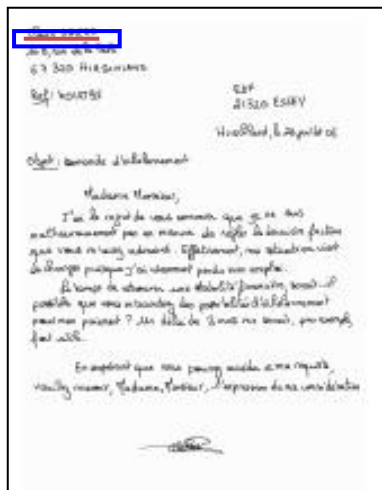 67320 HIRSCHLAND
Réf :
EDF
21320 ESSEY
Hirschland, le 26 juillet 06
Objet : demande d'échelonnement
Madame, Monsieur,
J'ai le regret de vous annoncer que je ne suis
malheureusement pas en mesure de régler la dernière facture
que vous m'avez adressée. Effectivement, ma situation vient
de changer puisque j'ai récemment perdu mon emploi.
Le temps de retrouver une stabilité financière, serait-il
possible que vous m'accordiez des possibilités d'échelonnement
pour mon paiement ? Un délai de 3 mois me serait, par exemple,
fort utile.
En espérant que vous pourrez accéder à ma requête,
veuillez recevoir, Madame, Monsieur, l'expression de ma considération